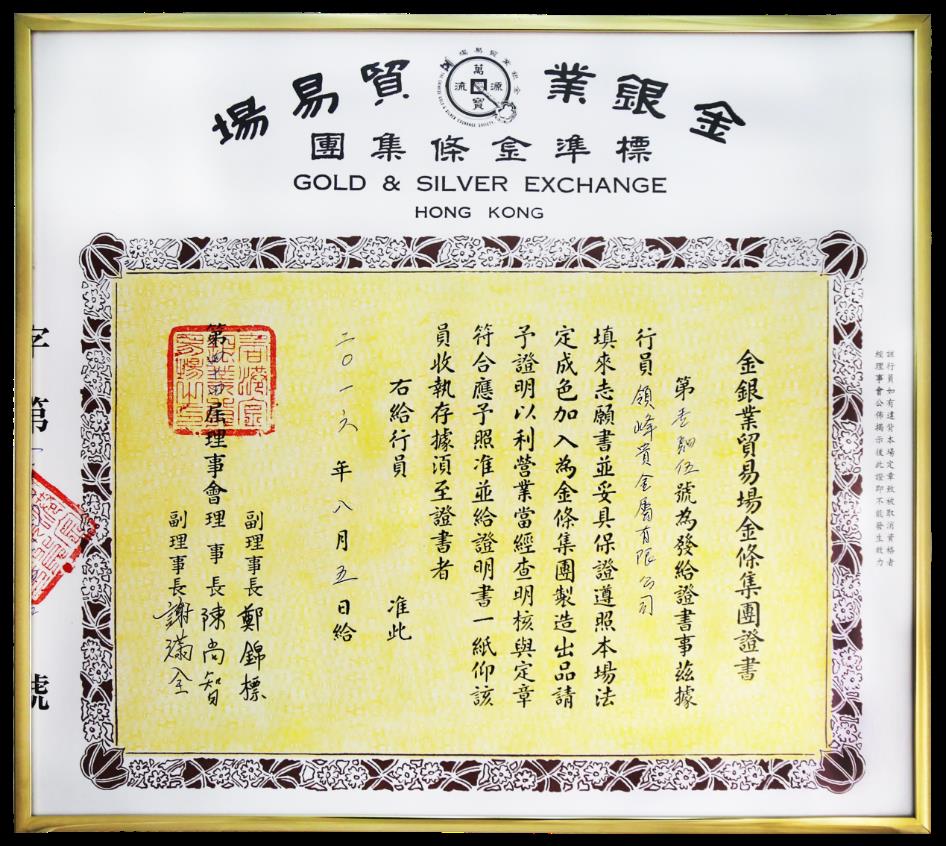 金銀業貿易場
標準金條集團
GOLD & SILVER EXCHANGE
HONG KONG
該行員如有違背本場定章致被取消資格者
經理事會公佈揭示後此證即不能發生效力
金銀業貿易場金條集團證書
第壹肆伍號為發給證書事茲據
行員領峰貴金屬有限公司
填來志願書並妥具保證遵照本場法
定成色加入為金條集團製造出品請
予證明以利營業當經查明核與定章
符合應予照准並給證明書一紙仰該
員收執存據須至證書者
右給行員 准此
二〇一六年八月五日給
副理事長鄭錦標
第屆理事會理事長陳尚智
副理事長謝滿全
字第 號